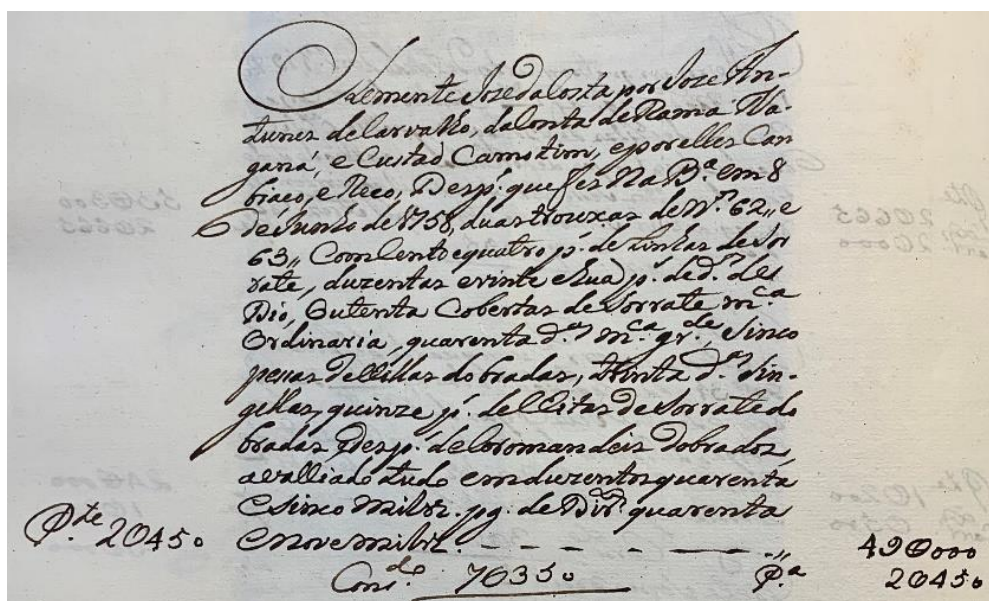 Clemente Joze da Costa por Joze An-
tunes de Carvalho, da Conta de Rama Na-
e Custad Camotim, e por elles Can
e Neco, Desp. que fes Na B.ª em 8
de Junho de 1758, duas trouxas de N.º 62,, e
63,, Com Cento e quatro p.s de Linhas de Sor
rate, duzentas e vinte e hua p.s de d.as de
Dio, Outenta Cobertas de Sorrate m.ca
Ordinaria, quarenta d.as m.ca gr.de, Sinco
pessas de dobradas, trinta d.as Sin-
gellas, quinze p.s de de Sorrate do
bradas de Coromandeis Dobrados,
avalliado tudo em duzentos quarenta
e sinco mil rz. pg. de Dir.tos quarenta
P.te 20450 e nove mil rz. - - - - - ,, 49@000
Cons.do 7@350 P.a 20450